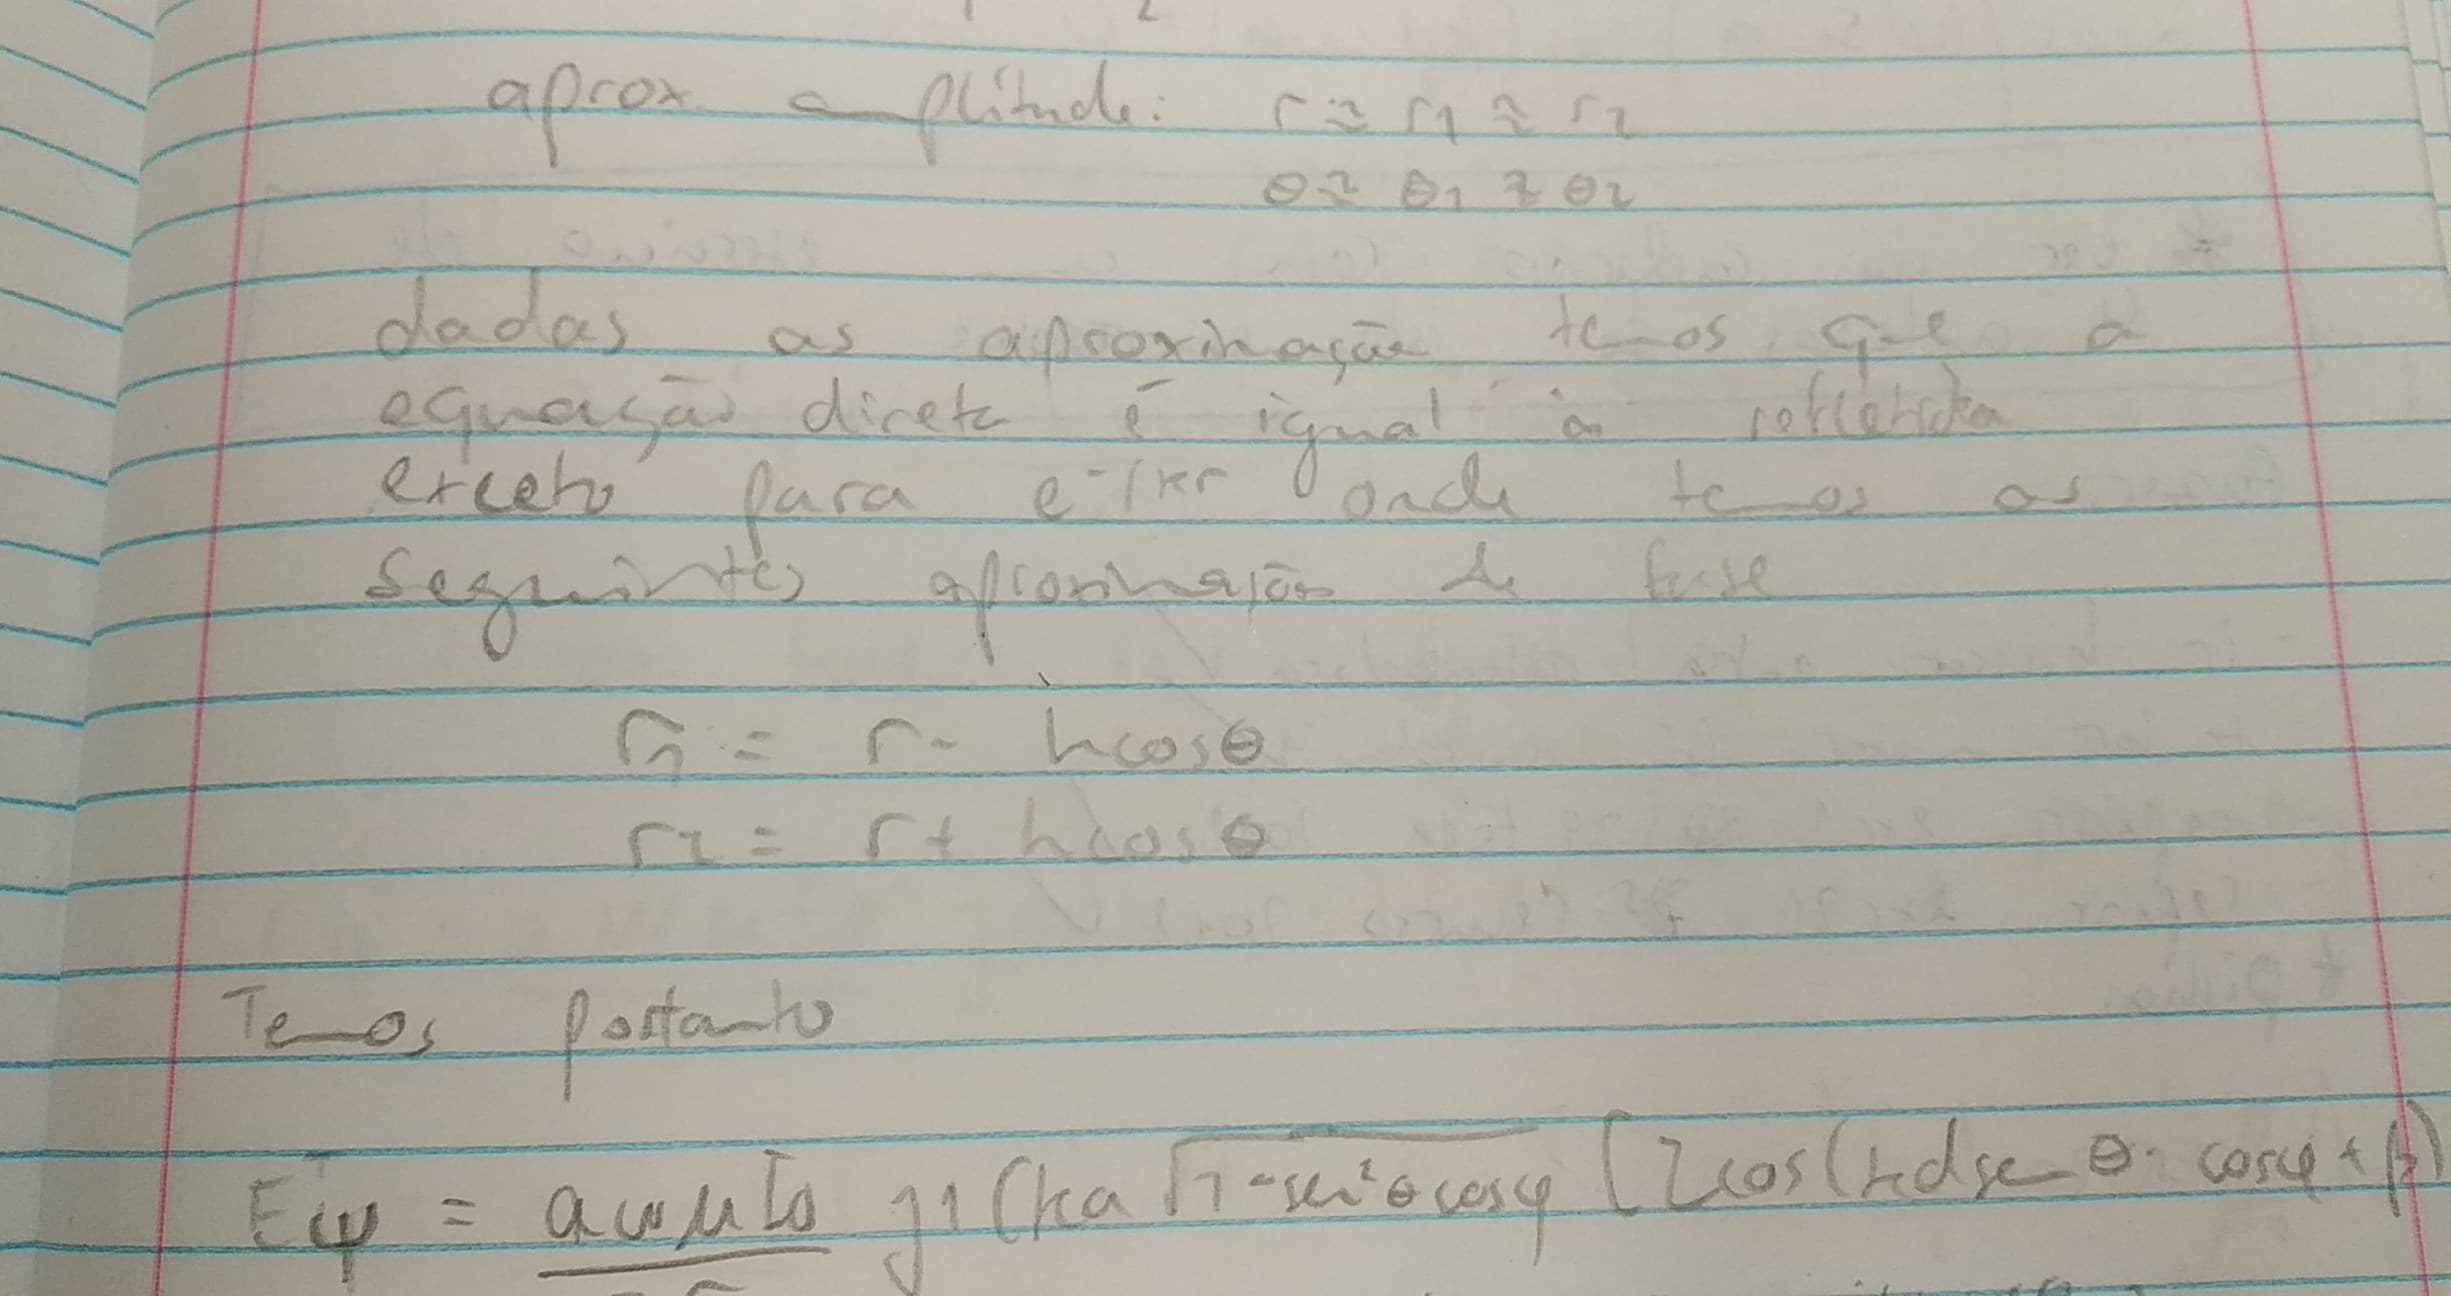 aprox amplitude: r ≈ r1 ≈ r2
θ ≈ θ1 ≈ θ2
dadas as aproximação temos que a
equação direta é igual à refletida
exceto para e^-jkr onde temos as
seguintes aproximação de fase
r1 = r - hcosθ
r2 = r + hcosθ
Temos portanto
Eψ = aωμI0 J1(ka √1-sen²θcosφ [2cos(kdsenθ·cosφ+β)